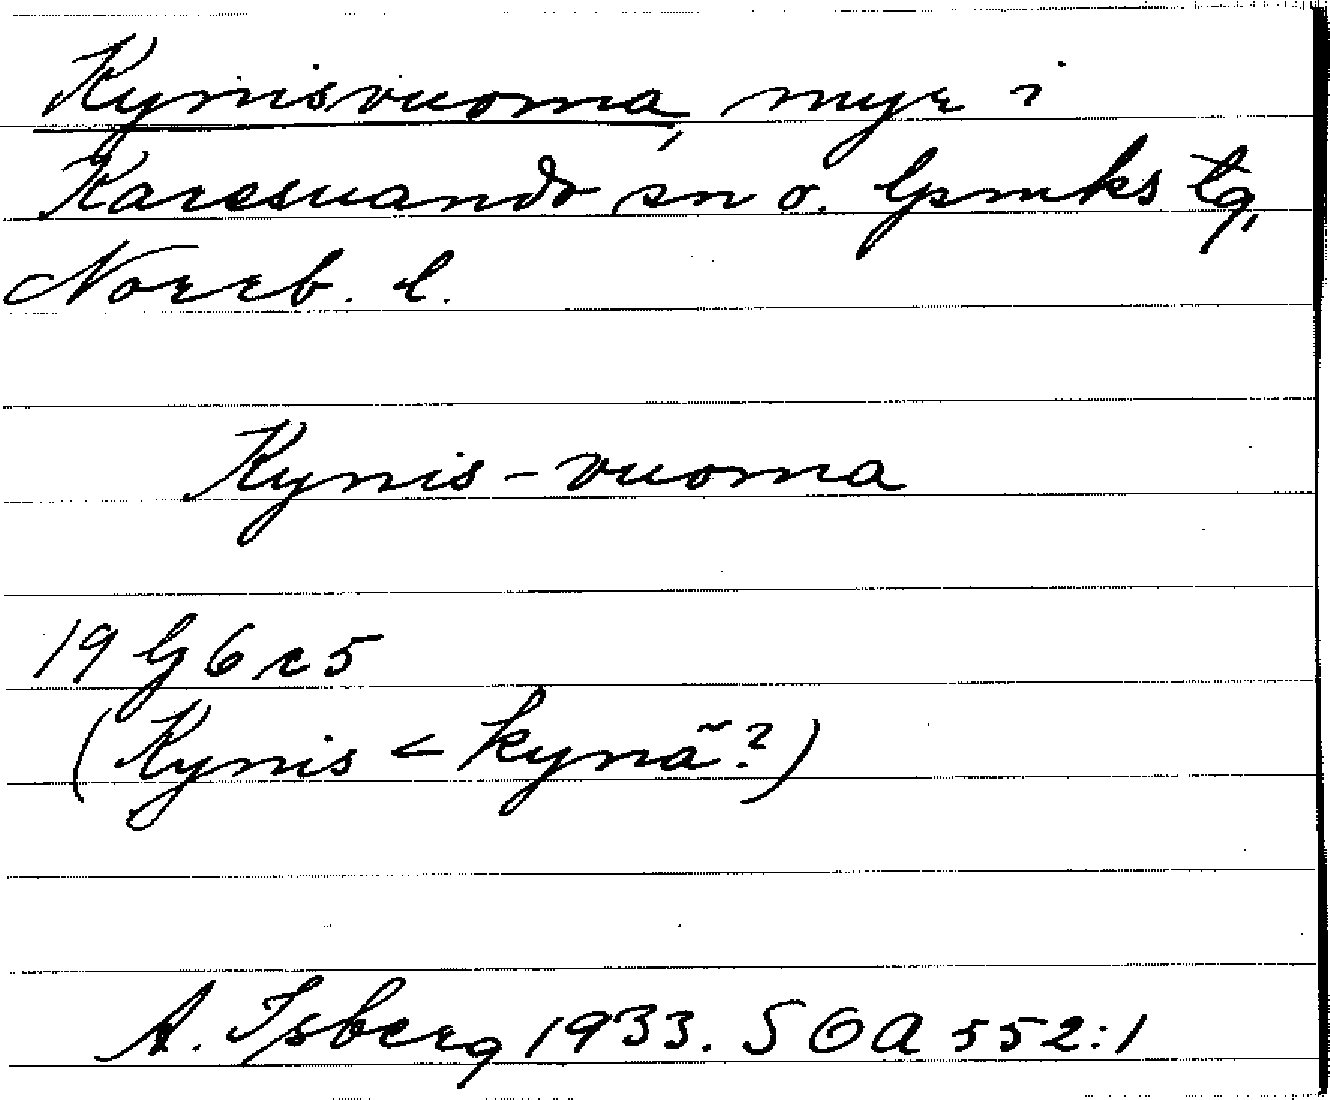 Kynisvuoma, myr i
Karesuando sn o. lpmks tg,
Norrb. l.
Kynis-vuoma
19 G 6 c 5
(Kynis < kynä?)
A. Isberg 1933. SOA 552:1